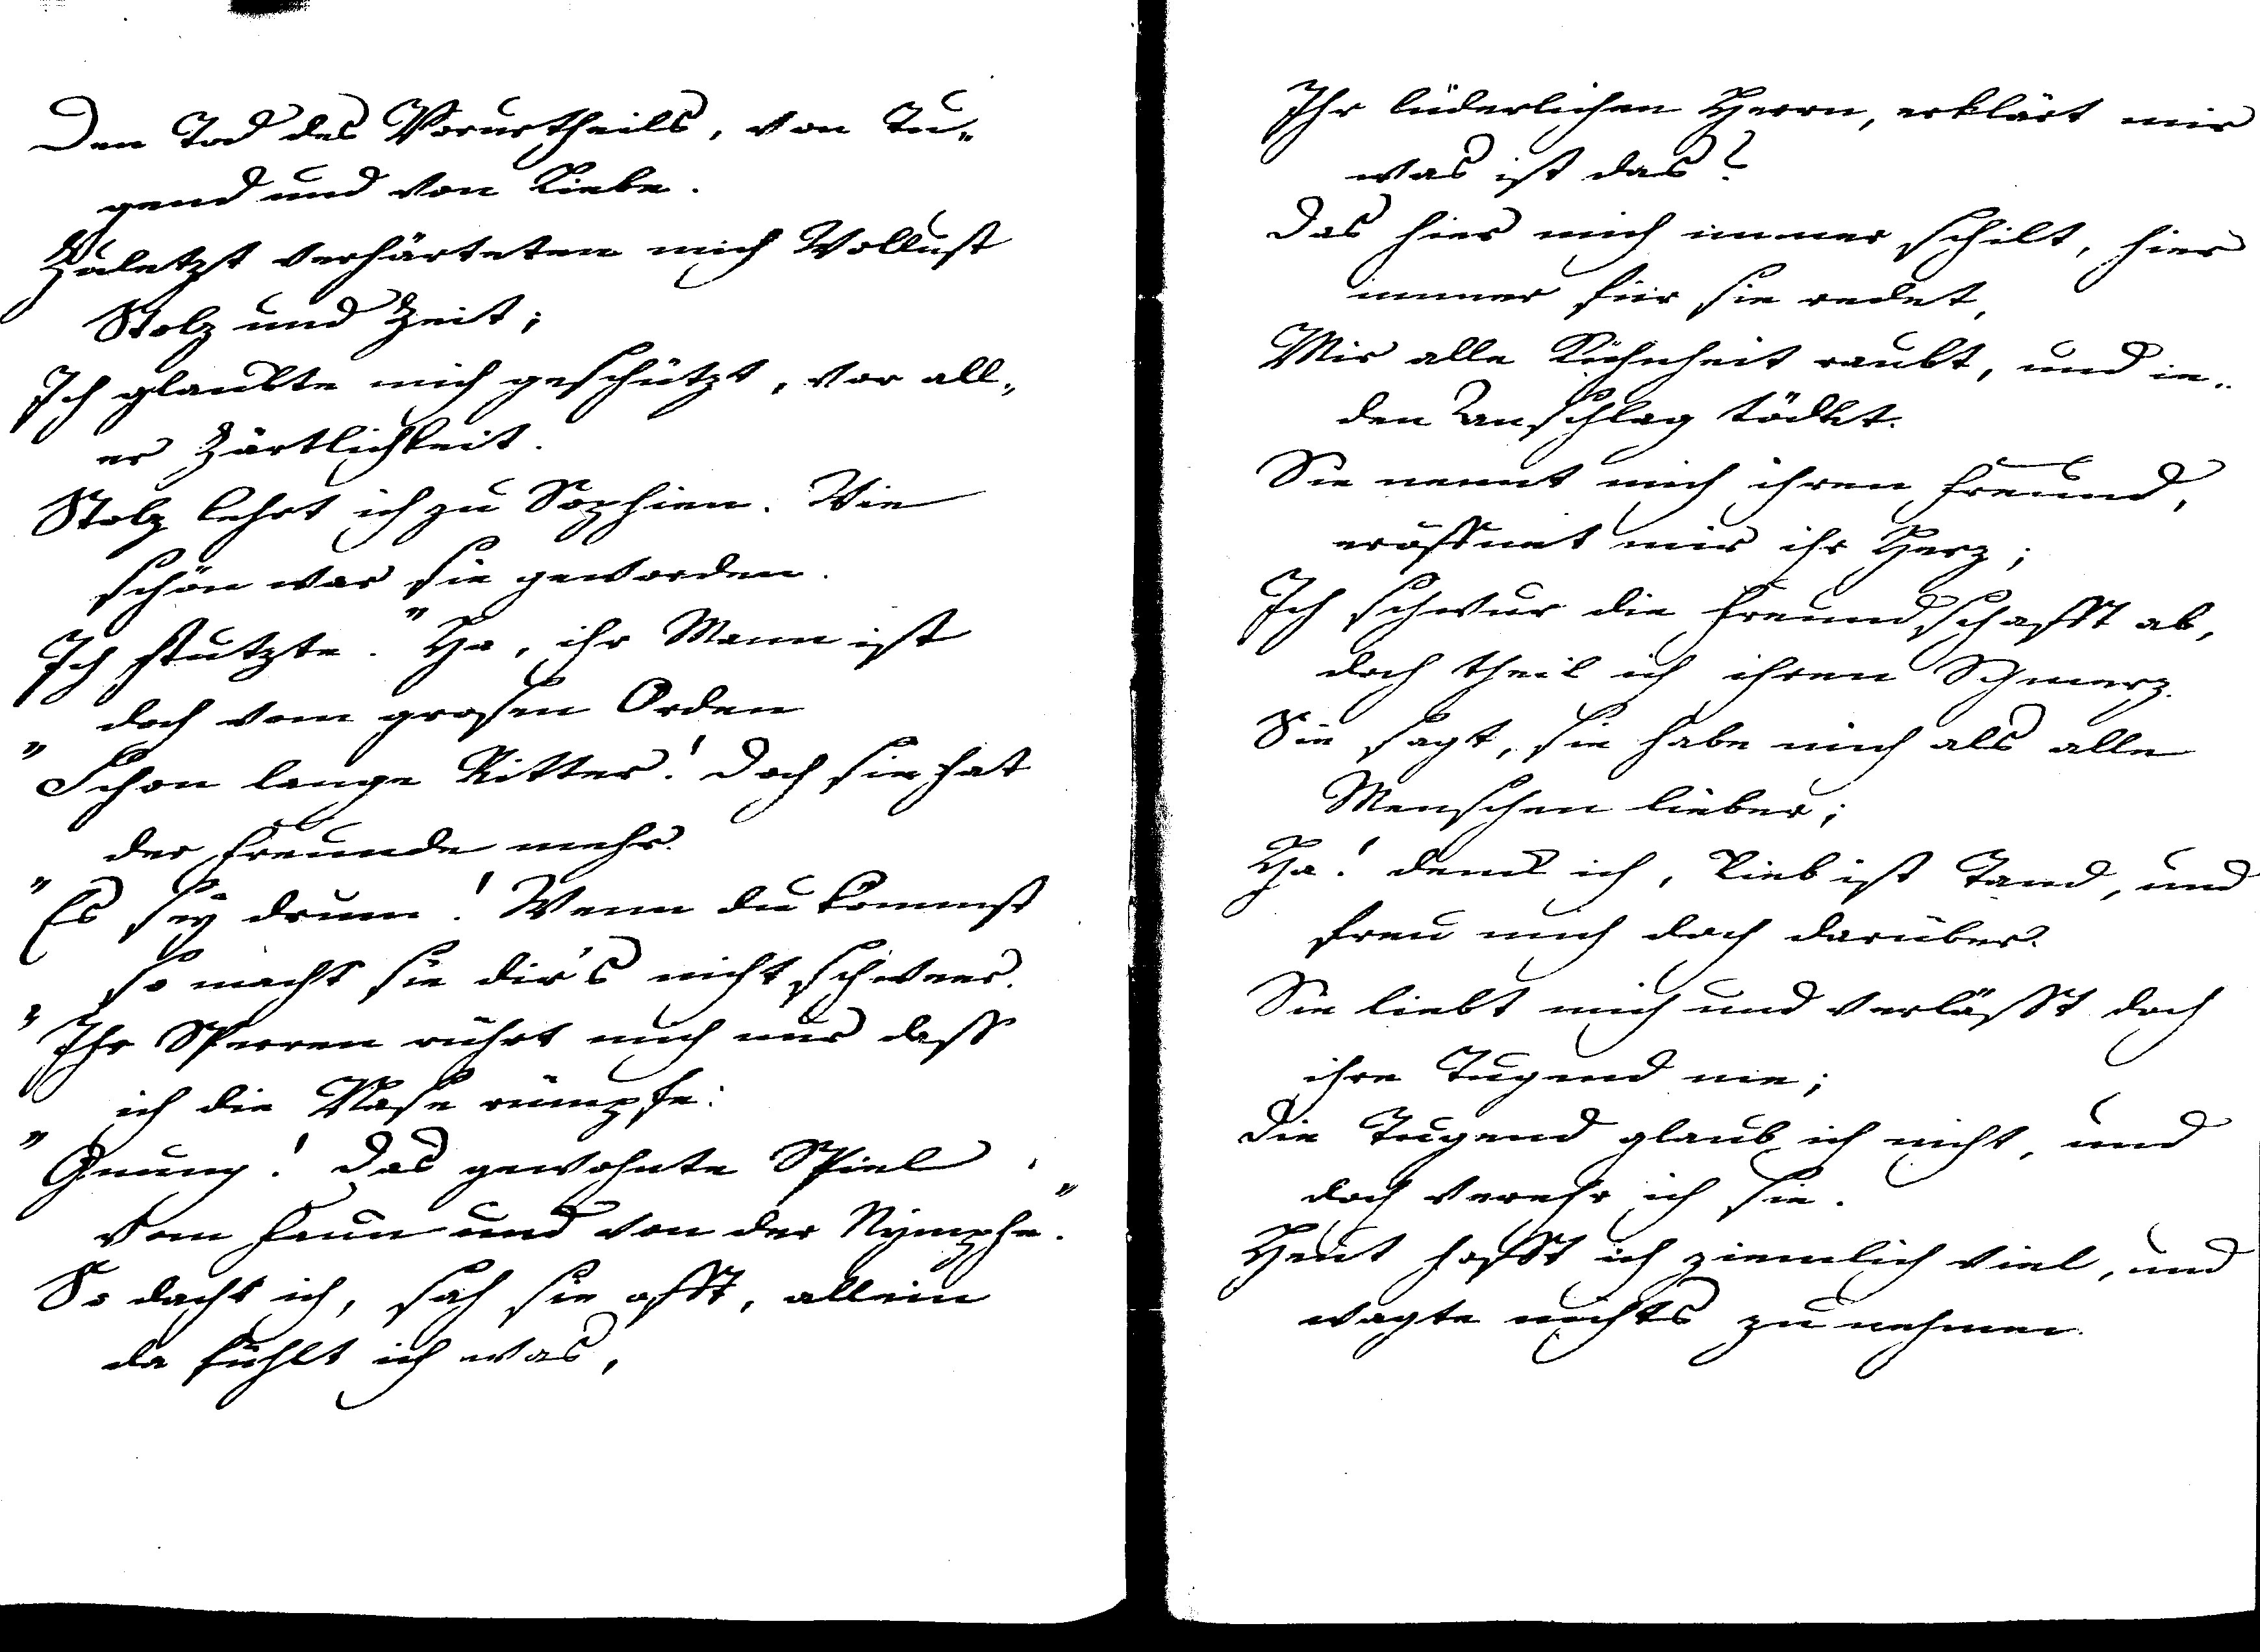 Den Tod des Vorurtheils, von Tu„
gend und von Liebe.
Zuletzt verhärteten mich Wollust
Stolz und Zeit;
Ich glaubte mich geschützt, vor all„
er Zärtlichkeit.
Stolz kehrt ich zu Sophien. Wie
schön war sie geworden.
Ich stutzte. "Ha, ihr Mann ist
doch vom grosen Orden
" Schon lange Ritter! Doch sie hat
der Freunde mehr.
" Es sey drum! Wenn du kommst
so macht sie dir's nicht schweer.
" Ihr Sperren rührt mich nur dass
ich die Nase rümpfe:
" Gnung! Das gewohnte Spiel
vom Faun und von der Nymphe."
So dacht ich, sah sie offt, allein
da fühlt ich was,
Ihr lüderlichen Herrn, erklärt mir
was ist das?
Das hier mich immer schilt, hier
immer für sie redet,
Mir alle Kühnheit raubt, und ie„
den Anschlag tödtet.
Sie nennt mich ihren Freund,
eröffnet mir ihr Herz;
Ich schwur die Freundschafft ab,
doch theil ich ihren Schmerz.
Sie sagt, sie habe mich als alle
Menschen lieber;
Ha! denck ich, Lieb ist Tand, und
freu mich doch darüber.
Sie liebt mich und verlässt doch
ihre Tugend nie;
Die Tugend glaub ich nicht, und
doch verehr ich sie.
Heut hofft ich ziemlich viel, und
wagte nichts zu nehmen.